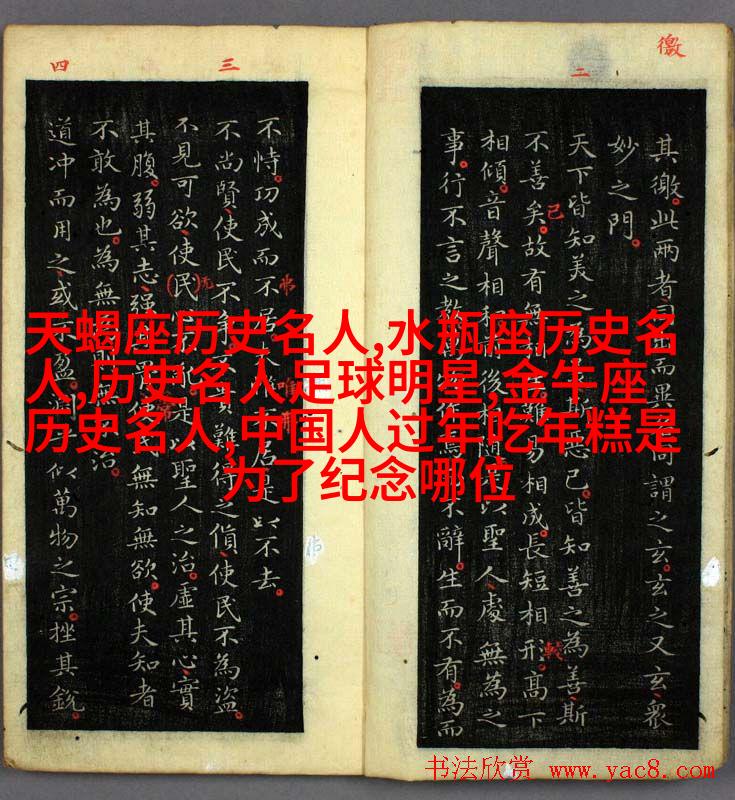 徼
二
其徼。此兩者同出而異同謂之玄。玄之又玄。衆
妙之門。
天下皆知美之為斯惡已。皆知善之為善斯
不善矣。故有無難易相成。長短相形。高下
相傾。音聲相和後相隨以聖人處無為之
事。行不言之教作焉不辭。生而不有。為而
三
四
不恃。功成而不居是以不去。
不尚賢、使民不爭貴難得之貨、使民不為盜。
不見可欲、使民是以聖人之治。虛其心、實
其腹。弱其志、强其使民無知無欲。使夫知者
不敢為也。為無為治。
道冲而用之、或不盈。淵似萬物之宗。挫其銳。
天蝎座历史名人,水瓶座历史名
人,历史名人足球明星,金牛座
历史名人,中国人过年吃年糕是
为了纪念哪位
书法欣赏 www.yac8.com